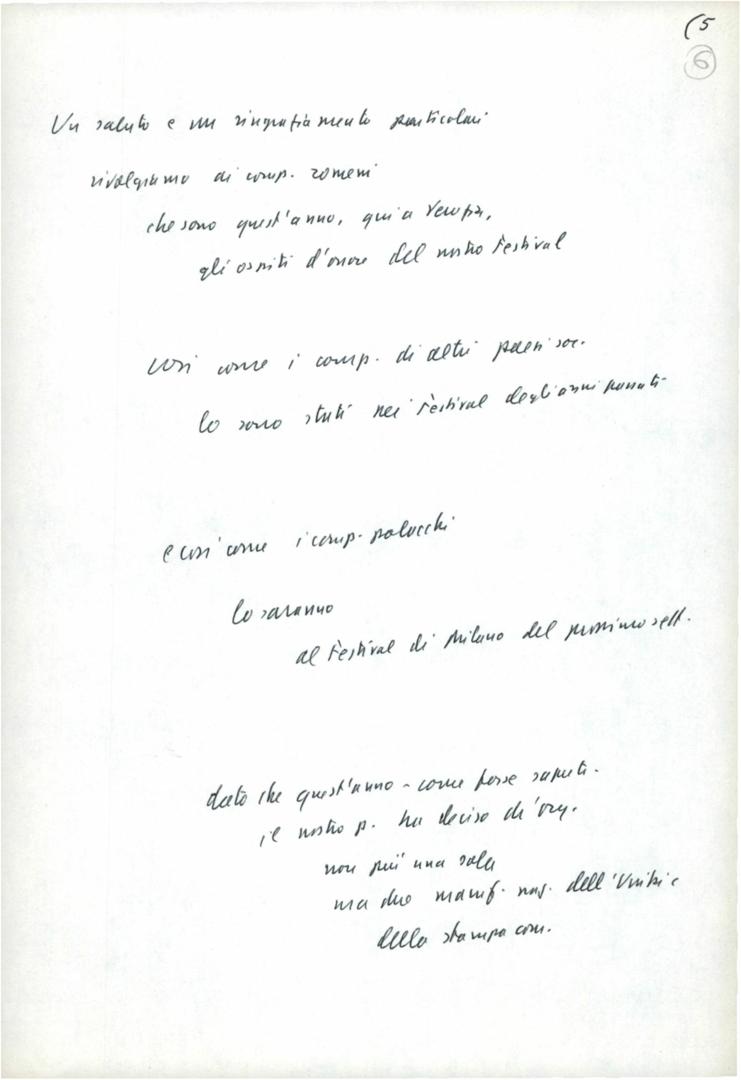 (5
6
Un saluto e un ringraziamento particolari
rivolgiamo ai comp. romeni
che sono quest'anno, qui a Venezia,
gli ospiti d'onore del nostro Festival
così come i comp. di altri paesi soc.
lo sono stati nei Festival degli anni passati
e così come i comp. polacchi
lo saranno
al Festival di Milano del prossimo sett.
dato che quest'anno - come forse saputi -
il nostro p. ha deciso di org.
non più una sola
ma due manif. naz. dell'Unità e
della stampa com.